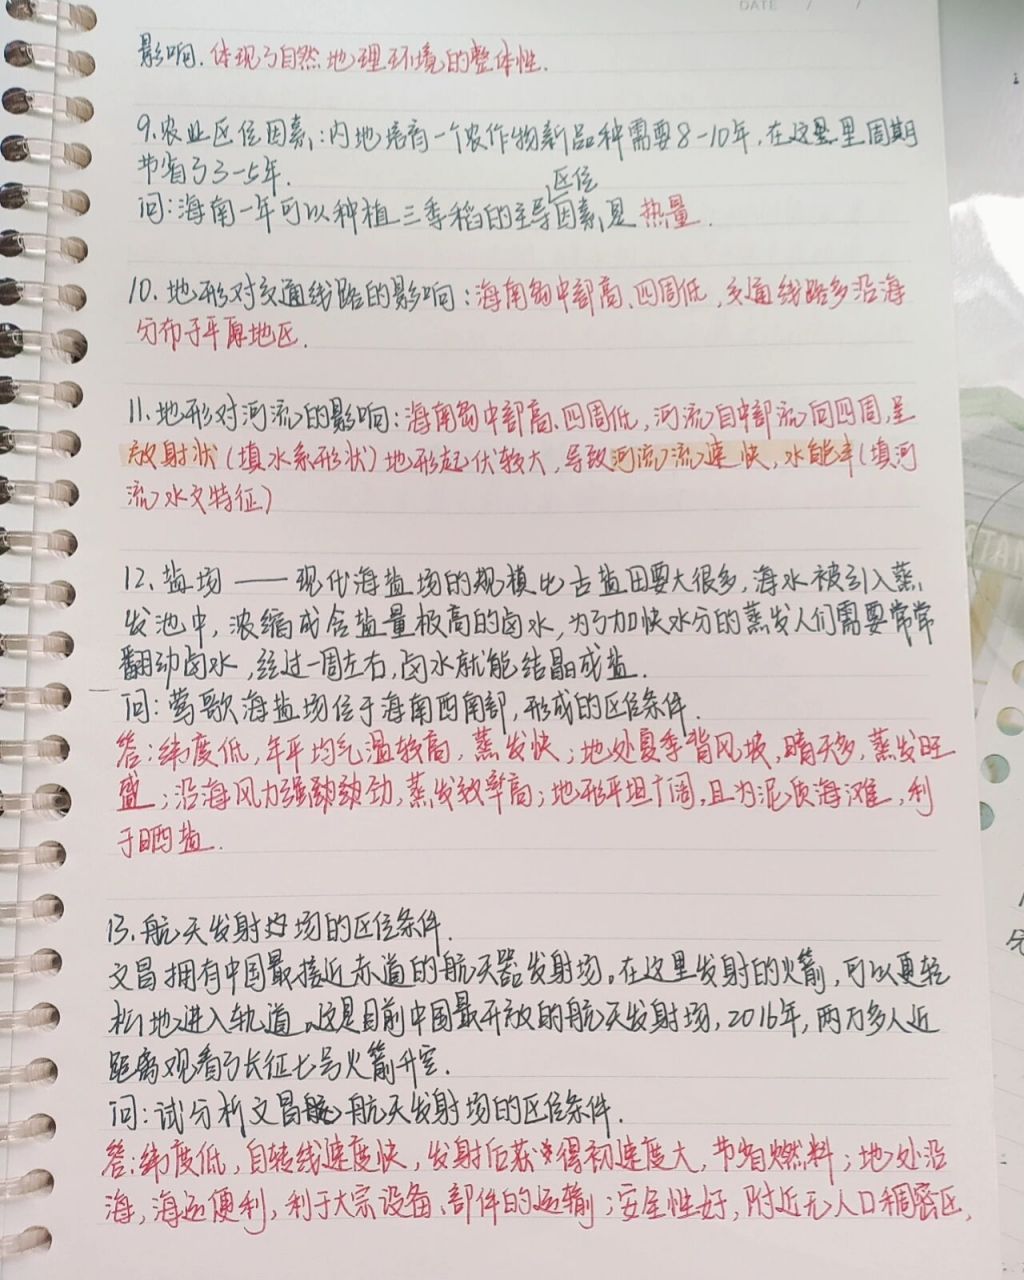 DATE / /
影响.体现了自然地理环境的整体性.
9.农业区位因素:内地培育一个农作物新品种需要8-10年,在这里周期
节省了3-5年.
区位
问:海南一年可以种植三季稻的主导因素是 热量.
10.地形对交通线路的影响:海南岛中部高、四周低,交通线路多沿海
分布于平原地区.
11.地形对河流的影响:海南岛中部高、四周低,河流自中部流向四周,呈
放射状(填水系形状)地形起伏较大,导致河流流速快,水能丰(填河
流水文特征)
12.盐场 —— 现代海盐场的规模比古盐田要大很多,海水被引入蒸
发池中,浓缩成含盐量极高的卤水,为了加快水分的蒸发人们需要常常
翻动卤水,经过一周左右,卤水就能结晶成盐.
问:莺歌海盐场位于海南西南部,形成的区位条件.
答:纬度低,年平均气温较高,蒸发快;地处夏季背风坡,晴天多,蒸发旺
盛;沿海风力强劲,蒸发效率高;地形平坦广阔,且为泥质海滩,利
于晒盐.
13.航天发射场的区位条件.
文昌拥有中国最接近赤道的航天器发射场。在这里发射的火箭,可以更轻
松地进入轨道。这是目前中国最开放的航天发射场,2016年,两万多人近
距离观看了长征七号火箭升空.
问:试分析文昌航天发射场的区位条件.
答:纬度低,自转线速度快,发射后获得初速度大,节省燃料;地处沿
海,海运便利,利于大宗设备、部件的运输;安全性好,附近无人口稠密区,